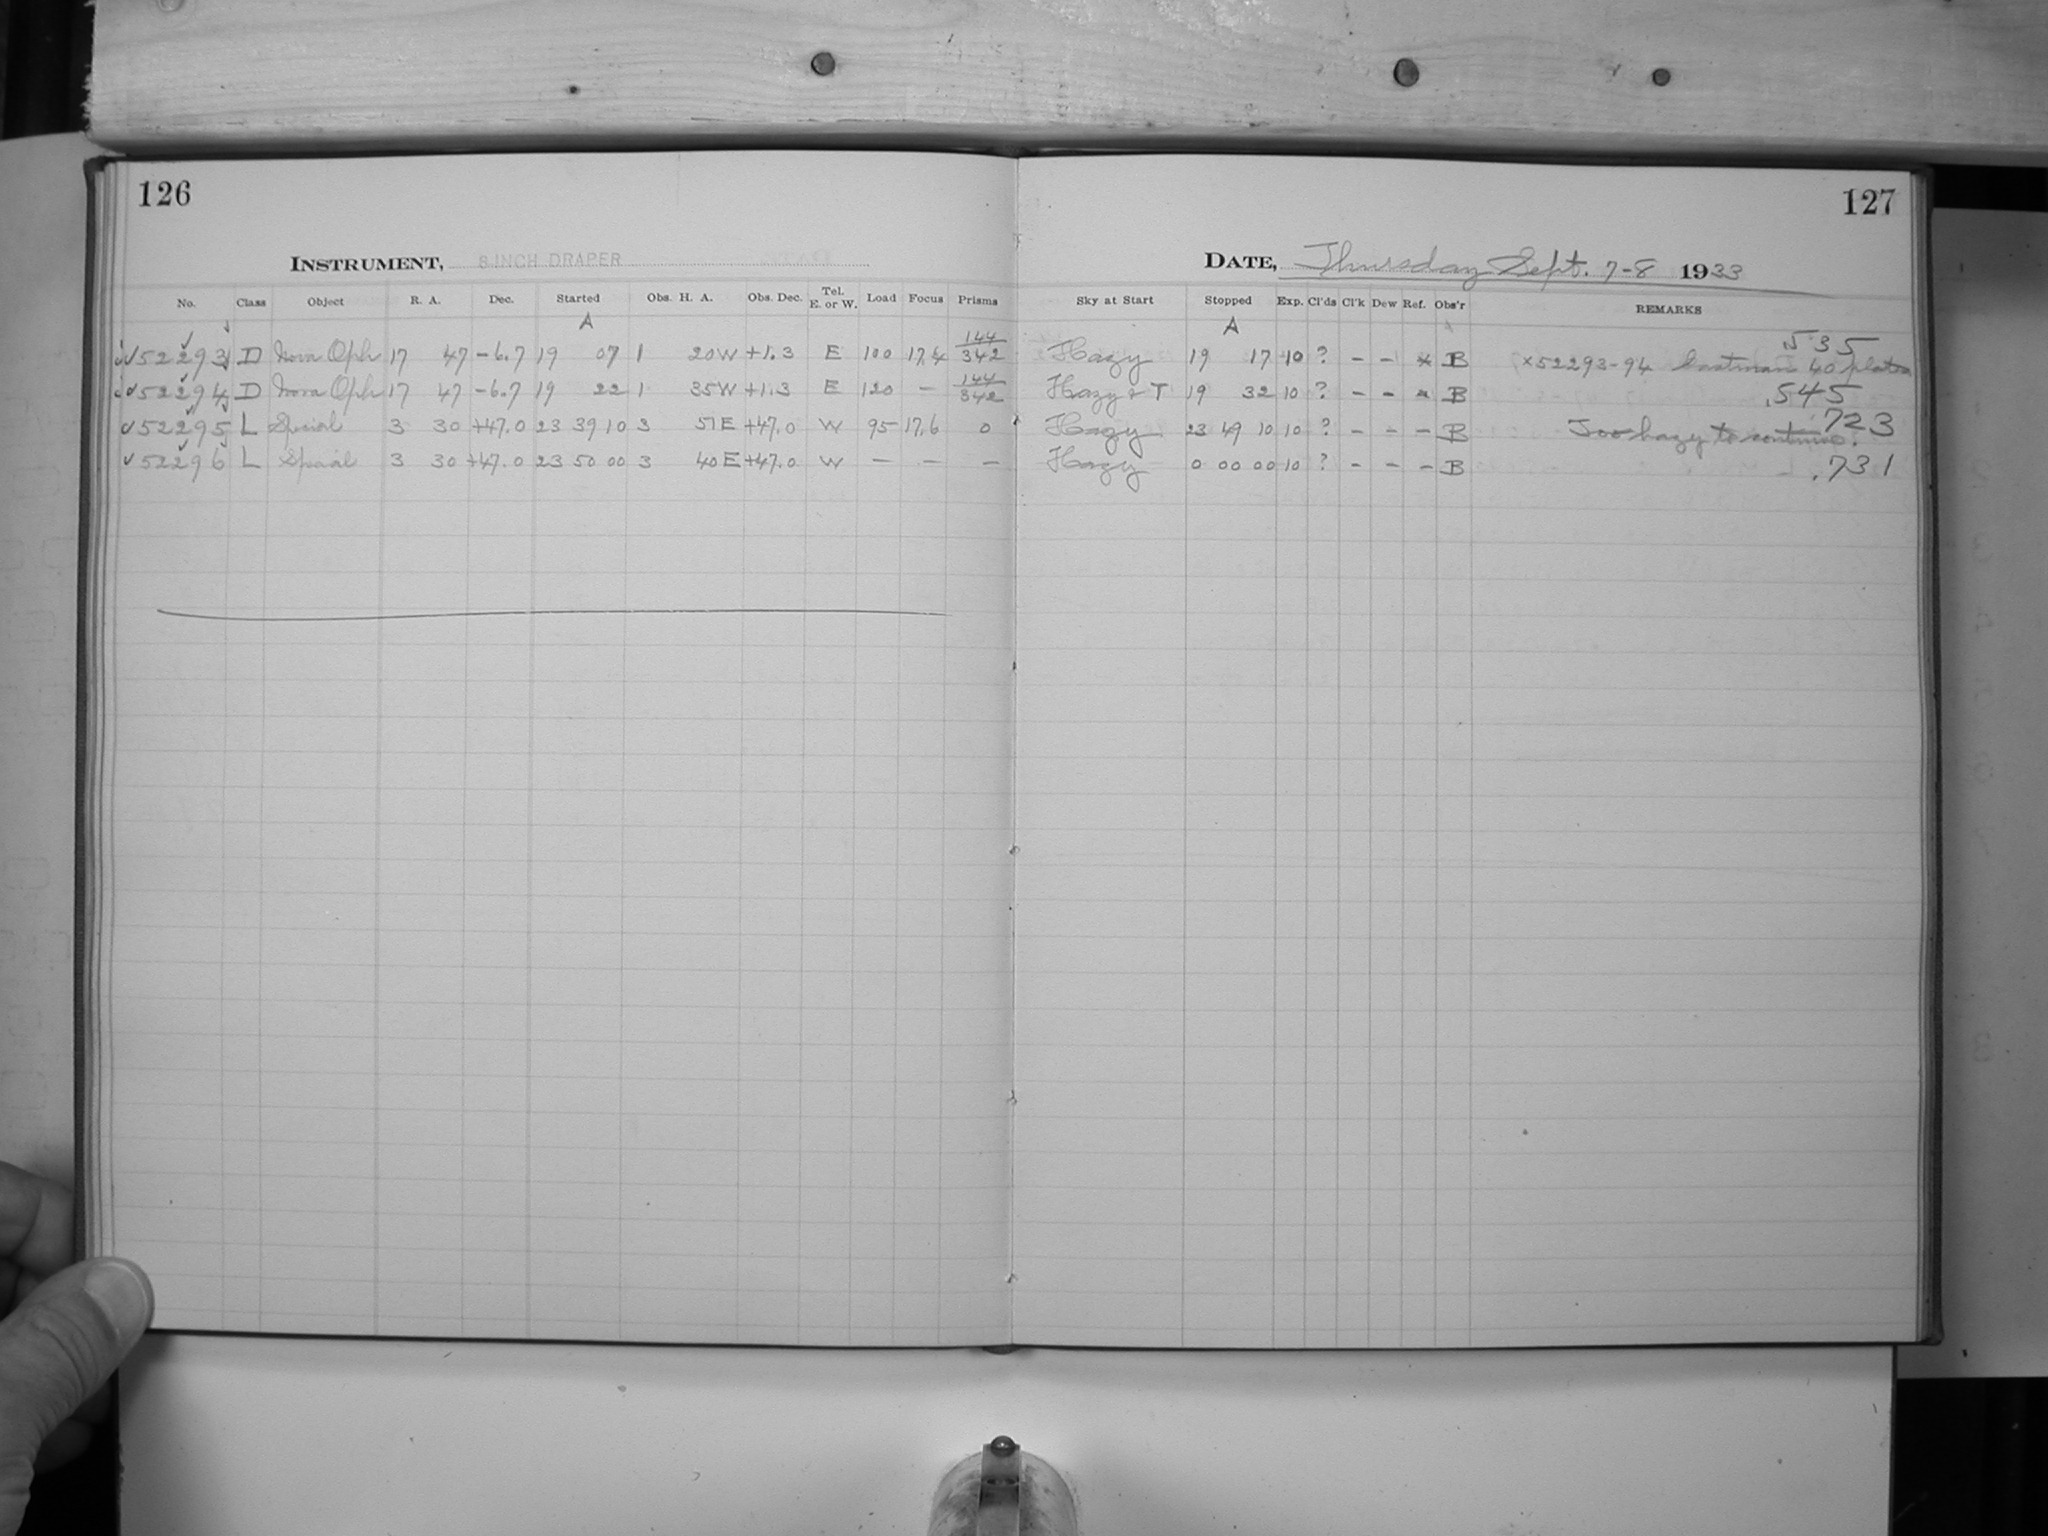 126
127
INSTRUMENT, 8 INCH DRAPER
DATE, Thursday Sept. 7-8 1933
No. Class Object R. A. Dec. Started Obs. H. A. Obs. Dec. Tel. E. or W. Load Focus Prisms Sky at Start Stopped Exp. Cl'ds Cl'k Dew Ref. Obs'r REMARKS
A A
52293 D Nova Oph 17 47 -6.7 19 07 1 20W +1.3 E 100 17.4 144/342 Hazy 19 17 10 ? - - x B x52293-94 Eastman 40 plates .535
52294 D Nova Oph 17 47 -6.7 19 22 1 35W +1.3 E 120 - 144/342 Hazy & T 19 32 10 ? - - x B .545
52295 L Special 3 30 +47.0 23 39 10 3 51E +47.0 W 95 17.6 0 Hazy 23 49 10 10 ? - - - B Too hazy to continue. .723
52296 L Special 3 30 +47.0 23 50 00 3 40E +47.0 W - - - Hazy 0 00 00 10 ? - - - B .731